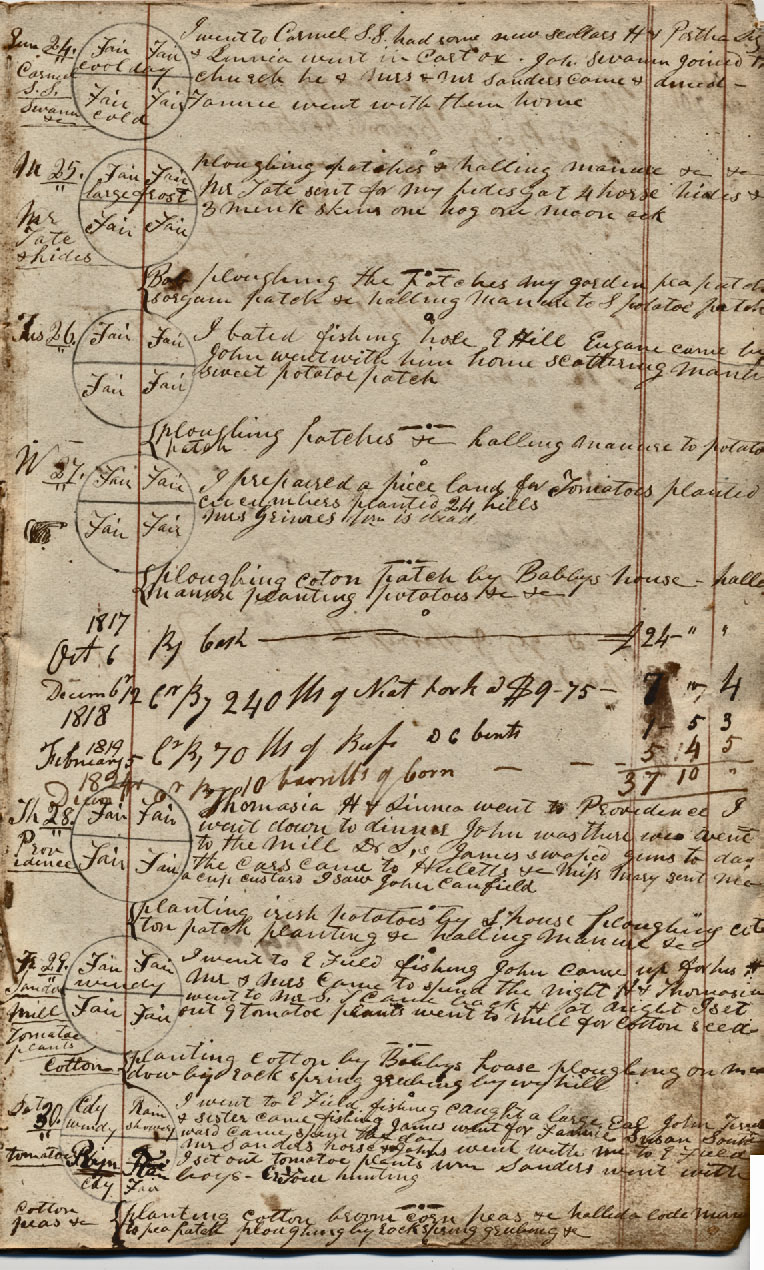 Sun 24. Fair Fair I went to Carmel S.S. had some new scollars H &
Carmel cool day & Linnia went in Cart ox. Joh. Swann joined
S.S. church he & Mrs & Mr Sanders came & dined -
Swann Fair Fair Fannie went with them home
&c cold
M 25. Fair Fair ploughing patches & halling manure &c &c
large frost Mr Tate sent for my hides got 4 horse hides &
Mr Fair Fair 3 mink skins one hog one
Tate
& hides
ploughing the Patches my garden pea patch
sorgum patch &c halling manure to S potatoe patch
Tus 26. Fair Fair I bated fishing hole E Hill Eugane came by
John went with him home scattering manure
Fair Fair sweet potatoe patch
ploughing patches &c halling manure to potato
patch
W 27. Fair Fair I prepaired a piece land for Tomatoes planted
cucumbers planted 24 hills
Fair Fair Mrs Grimes is dead
ploughing coton patch by Babbys house - halling
manure planting potatoes &c &c
1817
Oct 6 By Cash 24 " "
Decem 12 Cr By 240 lb of Neat Pork @ $9-75 - 7 4
1818 1 - 5 3
1819
February 5 Cr By 70 lb of Beef @ 6 Cents 5 4 5
10 barrells of Corn - - 37 10 "
Th 28. Fair Fair Thomasia H & Linnea went to Providence I
Prov went down to dinner John was there we went
idence Fair Fair to the mill Dr S, & James swoped guns to day
the cars came to Huletts & Miss Mary sent me
a cup custard I saw John Canfield
planting irish potatoes by S house ploughing cot
ton patch planting &c halling manure &c
Fr 29. Fair Fair I went to E Field fishing John came up for his
windy Mr & Mrs came to spend the night H & Thomasia
mill Fair Fair went to Mr S. I came back H at night I set
Tomatoe out 9 tomatoe plants went to mill for cotton seed
plants
Cotton planting cotton by Bobbys house ploughing on
dow by rock spring grubing by hill
Sat Cdy Rain I went to E Field fishing caught a large Eal John
30 windy showery & sister came fishing James went for Fannie Susan
ward came spent the day
Mr Sanders horse & Johns went with me to E Field
tomatoe I set out tomatoe plants Wm Sanders went with
Cdy Fair boys - hunting
Cotton planting cotton broom corn peas &c halled a lode
peas &c to pea patch ploughing by rock spring grubing &c